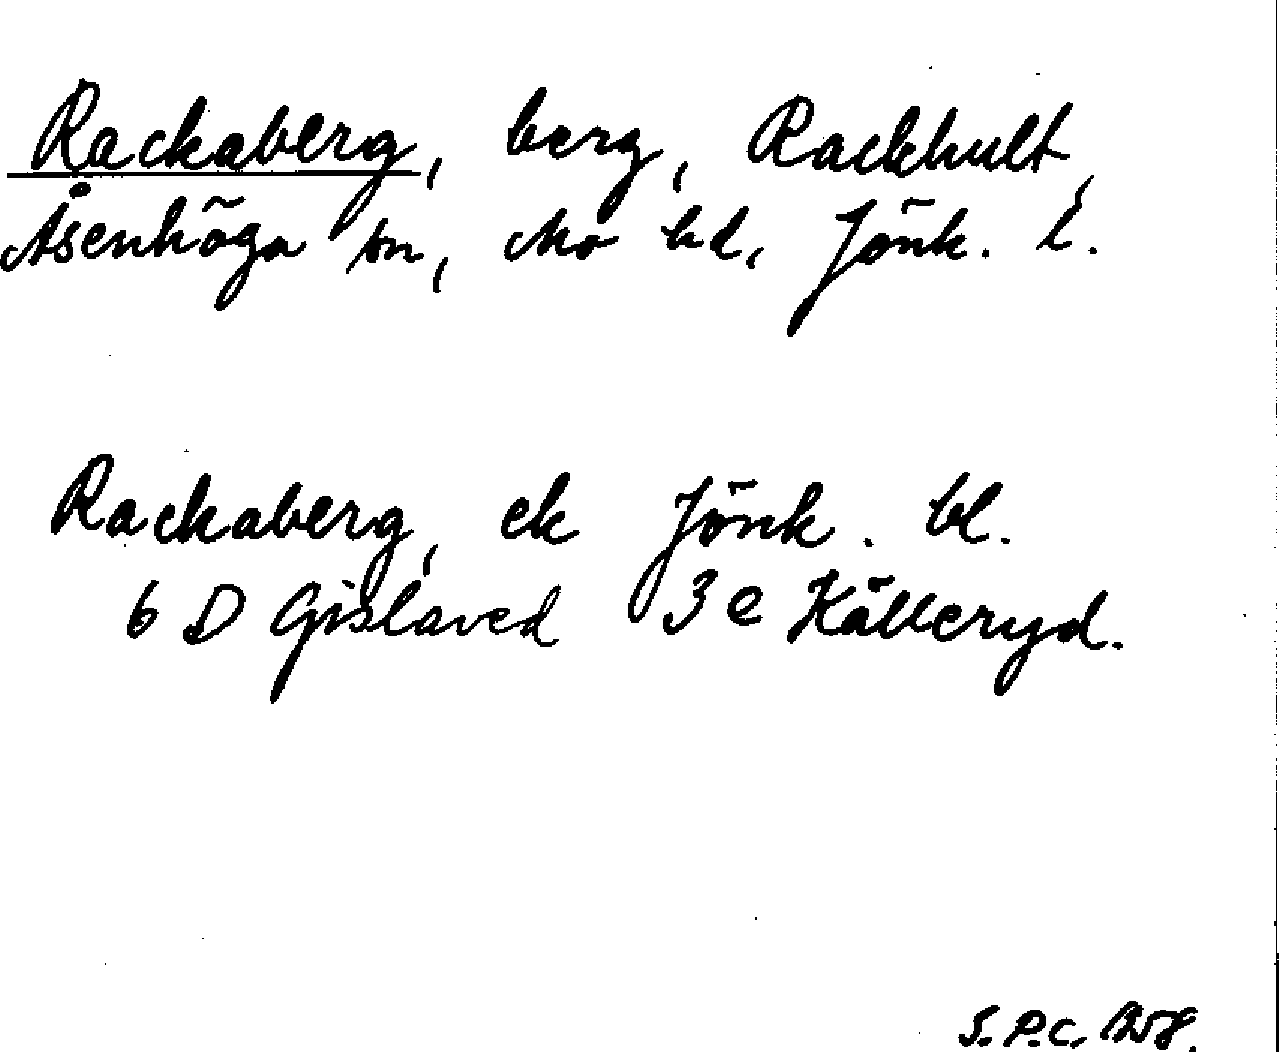 Rackaberg, berg, Rackhult,
Åsenhöga sn, Mo hd, Jönk. l.
Rackaberg, ek Jönk. bl.
6 D Gislaved 3 e Källeryd.
S.P.C. 1958.